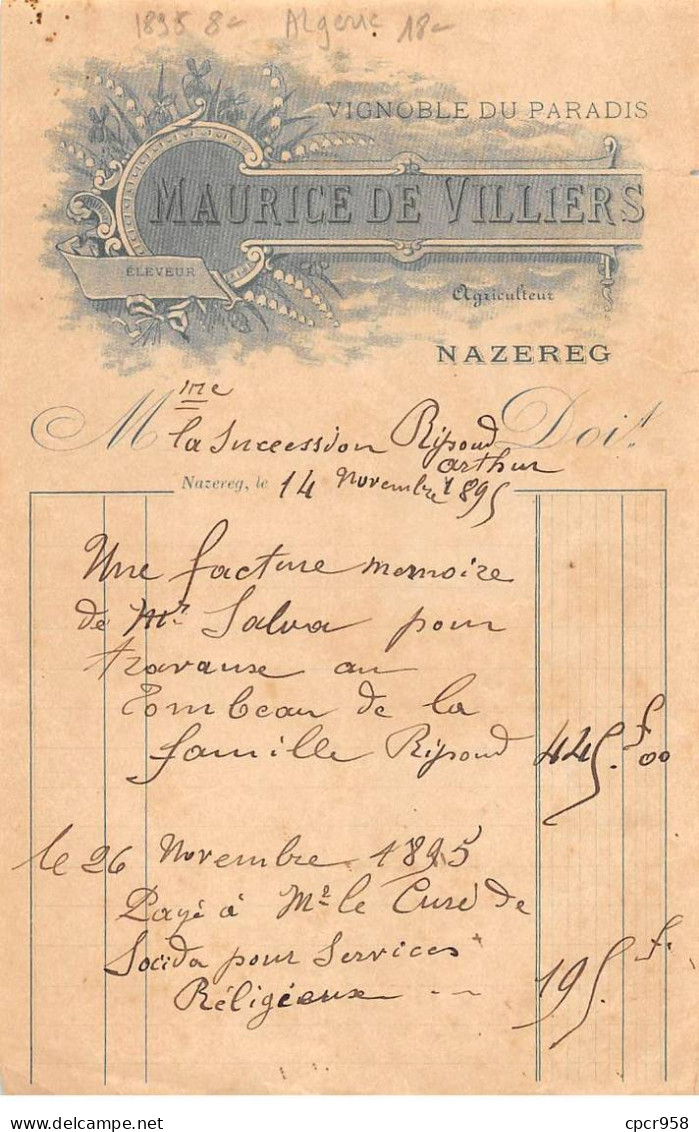 1895 8 Algerie 18
VIGNOBLE DU PARADIS
MAURICE DE VILLIERS
ÉLEVEUR
Agriculteur
NAZEREG
Mme Doit
la succession Ripoud
arthur
Nazereg, le 14 Novembre 1895
Une facture memoire
de Mr Salva pour
travause au
Tombeau de la
famille Ripoud 445.f00
le 26 Novembre 1895
Payé à Mr le Curé de
Saida pour Services
Réligieuse -- 195.f.
cpcr958